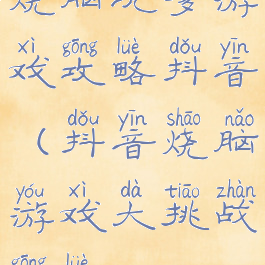 xì gōng lüè dǒu yīn
戏攻略抖音
dǒu yīn shāo nǎo
（抖音烧脑
yóu xì dà tiāo zhàn
游戏大挑战
gōng lüè